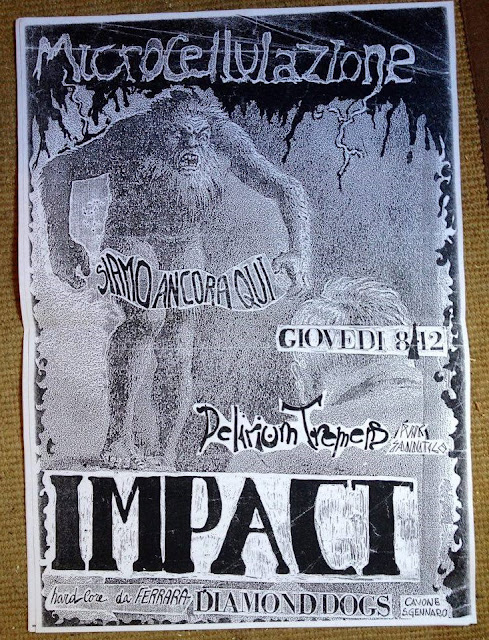 Microcellulazione
SIAMO ANCORA QUI
GIOVEDI 8/12
Delirium Tremens
PUNK SANNITICO
IMPACT
hard core da FERRARA
DIAMOND DOGS
CAVONE S.GENNARO